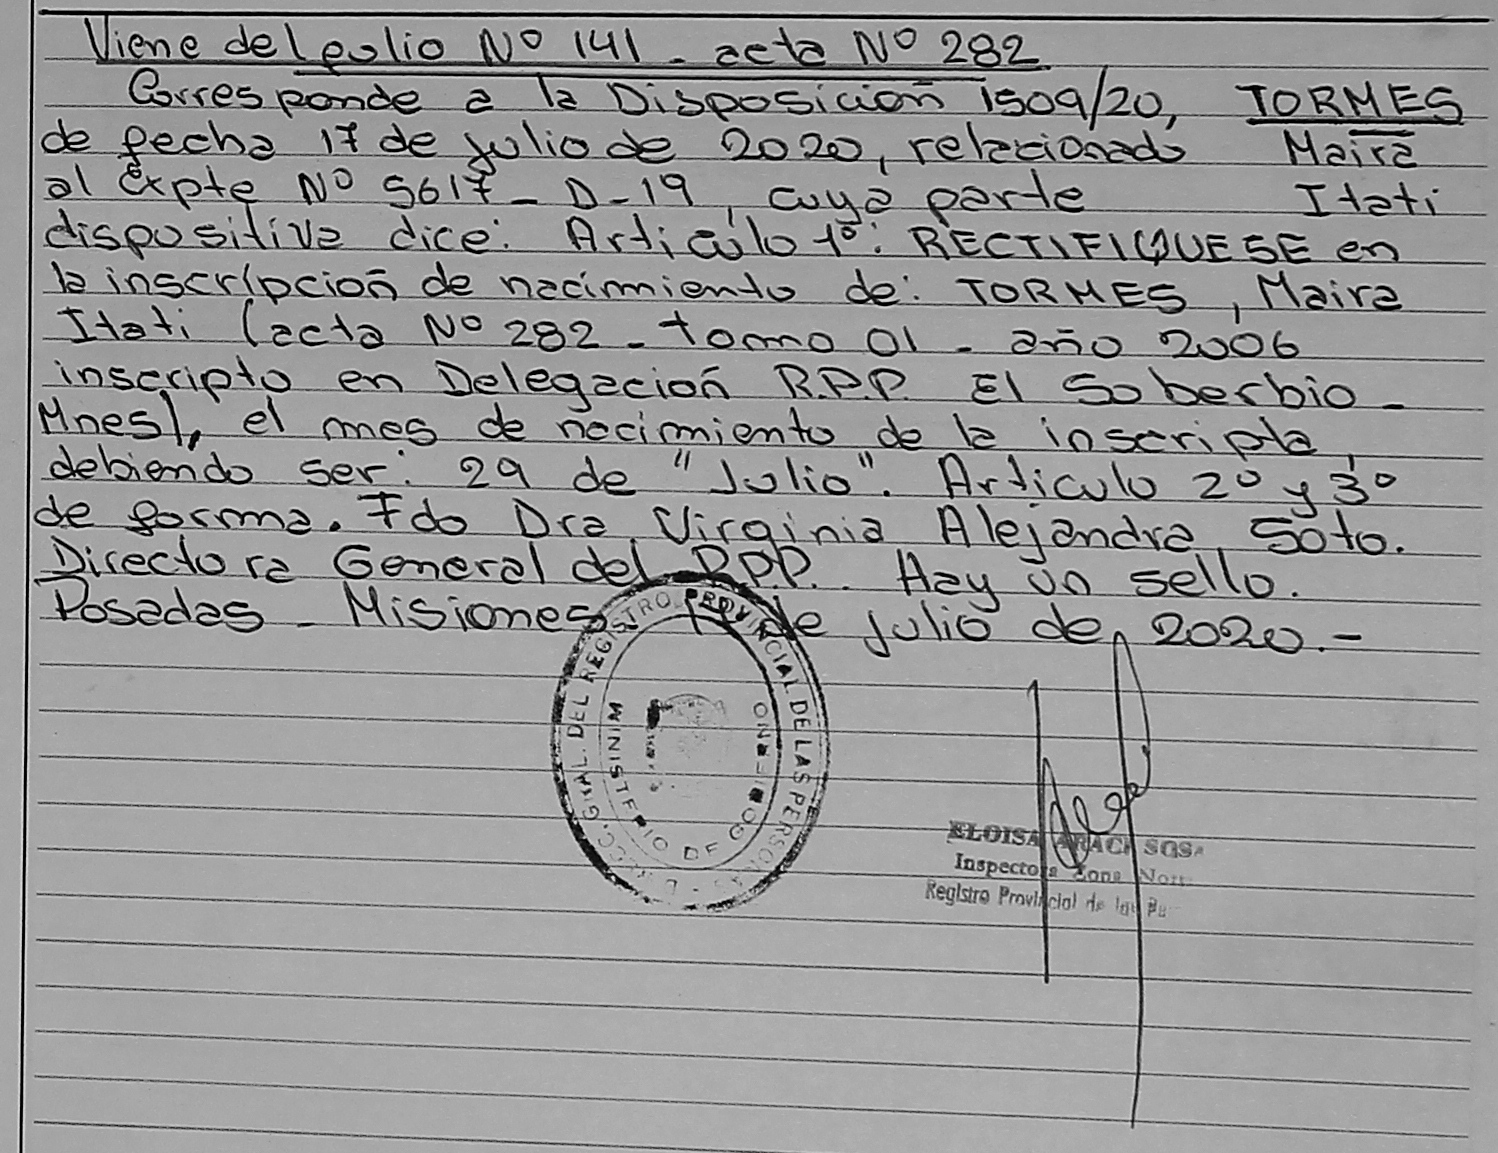 Viene del folio Nº 141 - acta Nº 282
Corresponde a la Disposición 1509/20, TORMES
de fecha 17 de julio de 2020, relacionado Maira
al Expte Nº 5617 - D-19, cuya parte Itati
dispositiva dice: Articulo 1º: RECTIFIQUESE en
la inscripción de nacimiento de: TORMES, Maira
Itati (acta Nº 282 - tomo 01 - año 2006
inscripto en Delegación R.P.P. El Soberbio -
Mnes), el mes de nacimiento de la inscripta,
debiendo ser: 29 de "Julio". Articulo 2º y 3º
de forma. Fdo Dra Virginia Alejandra Soto.
Directora General del R.P.P. Hay un sello.
Posadas - Misiones de julio de 2020.-
GRAL. DEL REGISTRO PROVINCIAL DE LAS PERSONAS
MINISTERIO DE GOBIERNO
ELOISA ARACI SOSA
Inspectora Zona
Registro Provincial de las